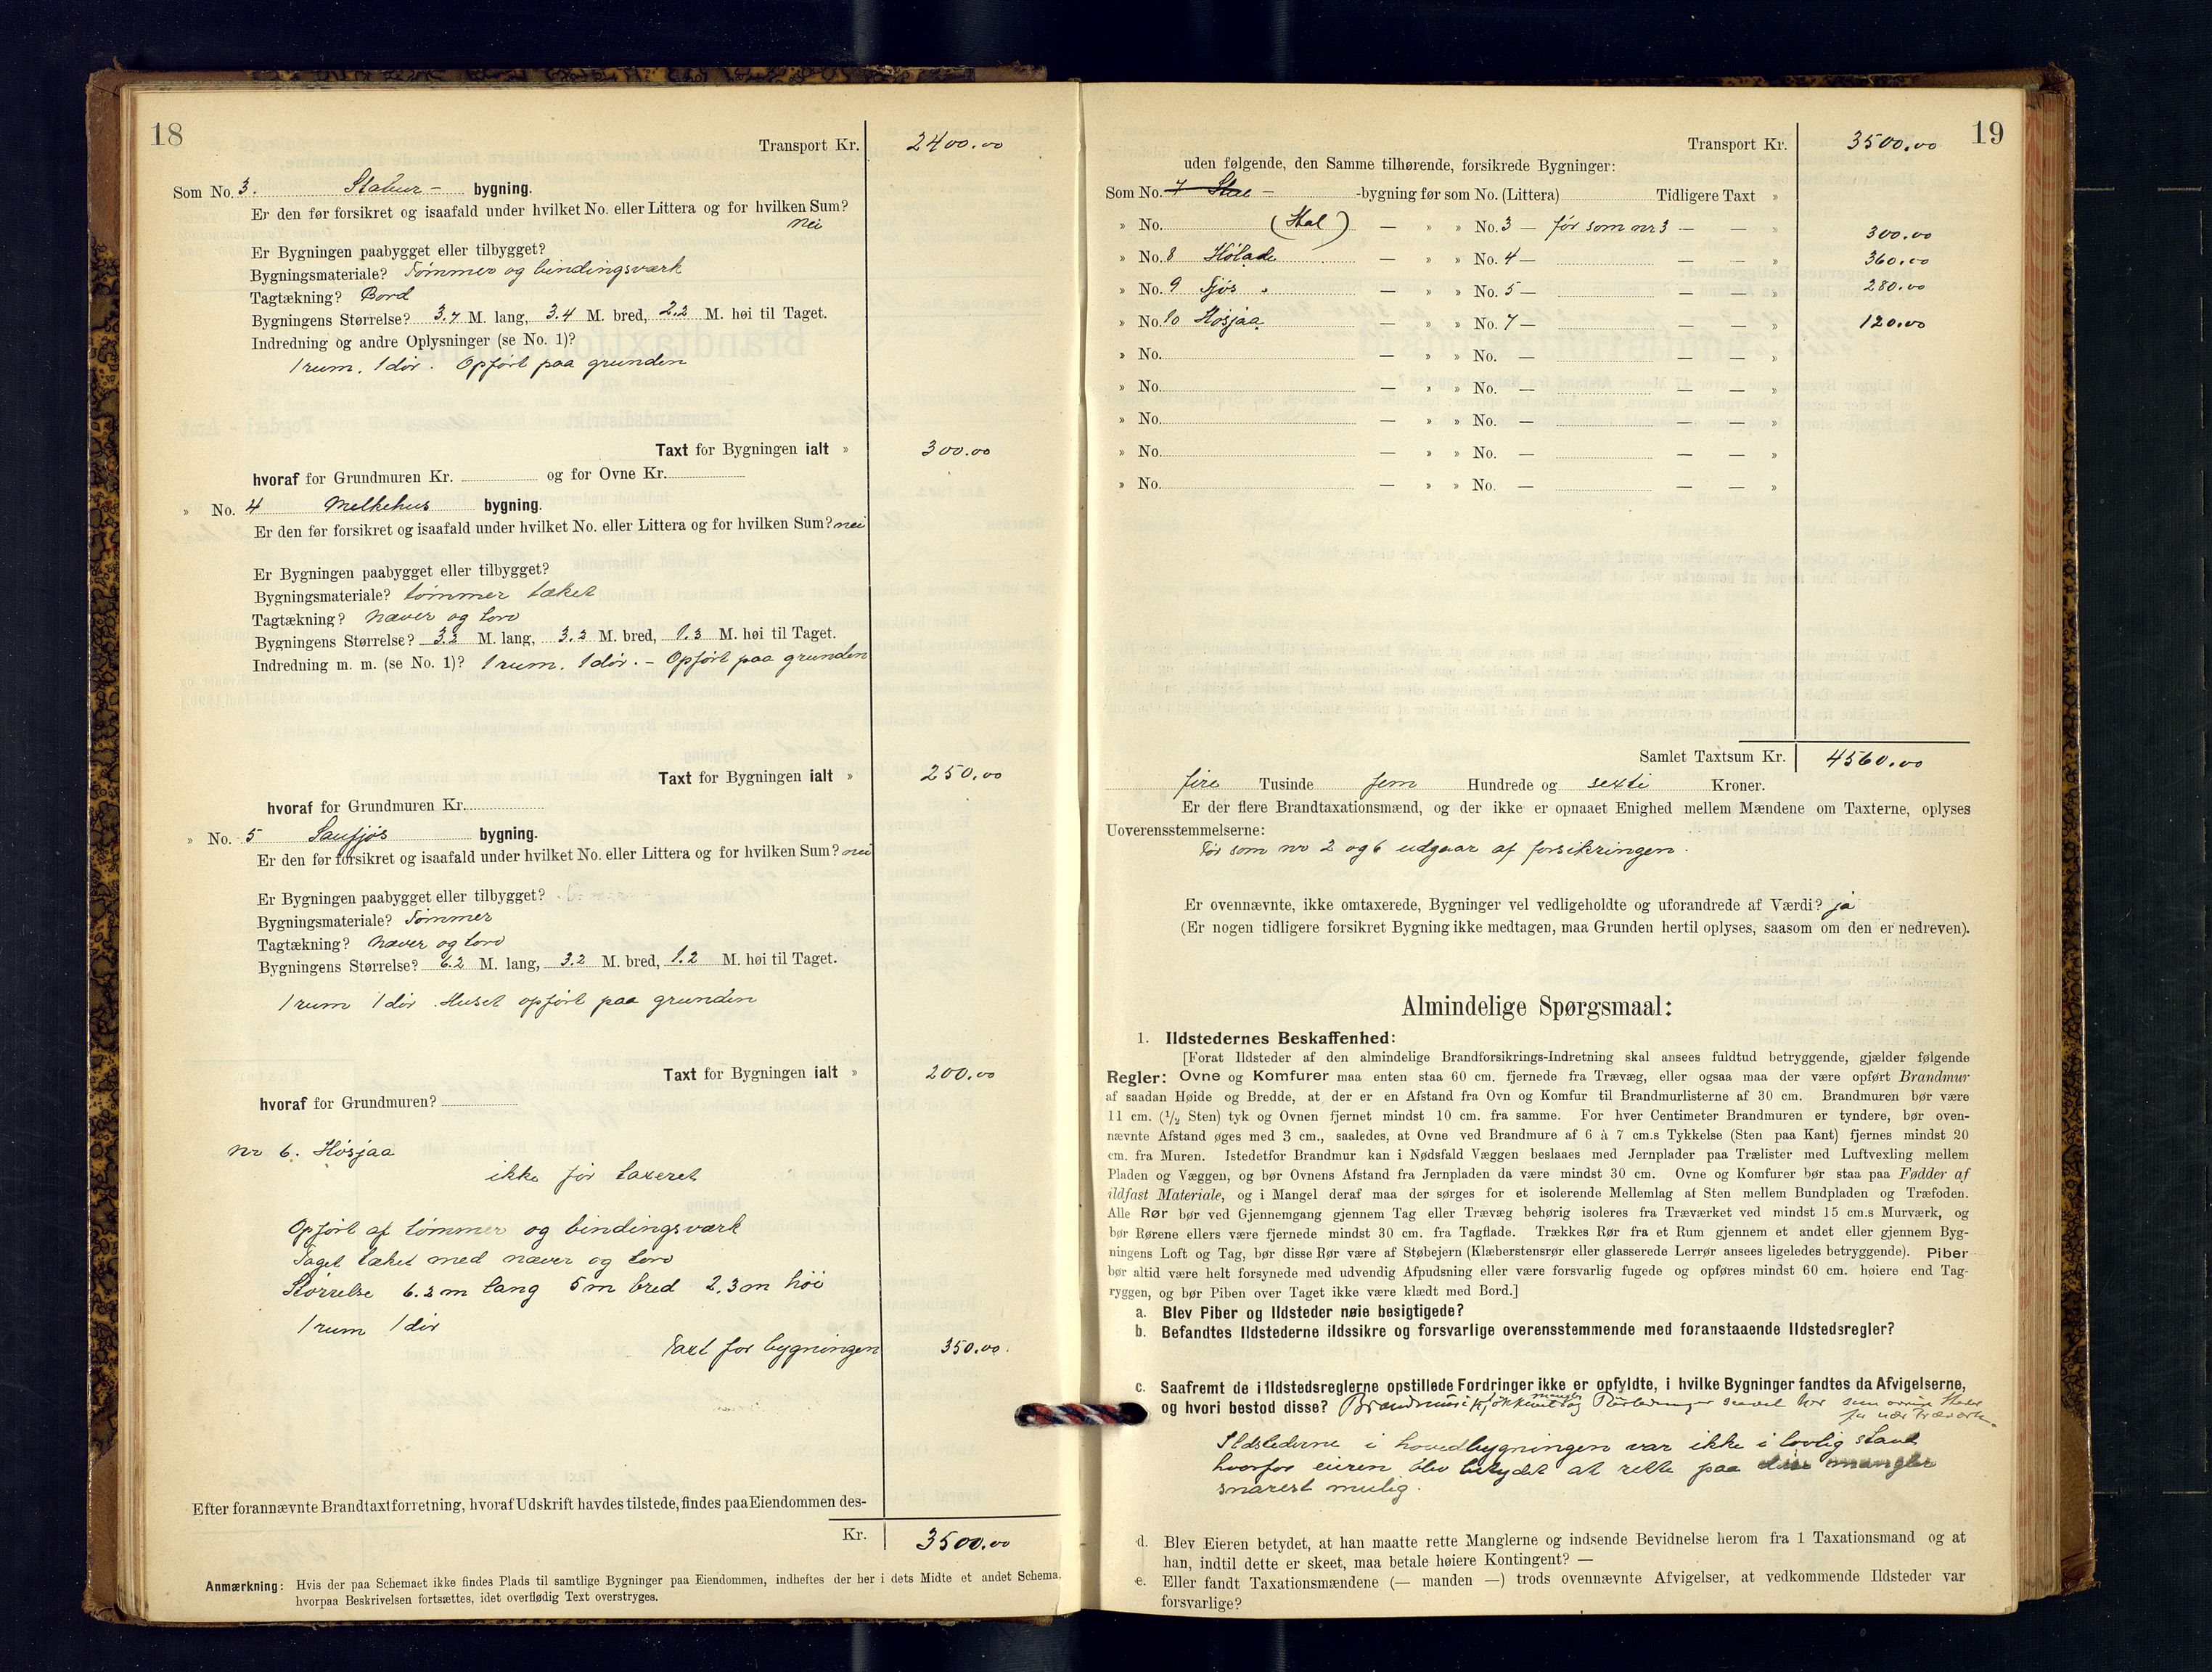 18
Transport Kr. 2400.00
Som No. 3. Stabur - bygning.
Er den før forsikret og isaafald under hvilket No. eller Littera og for hvilken Sum?
nei
Er Bygningen paabygget eller tilbygget?
Bygningsmateriale? Tømmer og bindingsværk
Tagtækning? Bord
Bygningens Størrelse? 3.7 M. lang, 3.4 M. bred, 2.2 M. høi til Taget.
Indredning og andre Oplysninger (se No. 1)?
1 rum. 1 dør. Opført paa grunden
Taxt for Bygningen ialt » 300.00
hvoraf for Grundmuren Kr. og for Ovne Kr.
» No. 4 Melkehus bygning.
Er den før forsikret og isaafald under hvilket No. eller Littera og for hvilken Sum? nei
Er Bygningen paabygget eller tilbygget?
Bygningsmateriale? tømmer tæket
Tagtækning? Næver og torv
Bygningens Størrelse? 3.2 M. lang, 3.2 M. bred, 1.3 M. høi til Taget.
Indredning m. m. (se No. 1)? 1 rum. 1 dør. - Opført paa grunden
Taxt for Bygningen ialt » 250.00
hvoraf for Grundmuren Kr.
» No. 5 Saufjøs bygning.
Er den før forsikret og isaafald under hvilket No. eller Littera og for hvilken Sum? nei
Er Bygningen paabygget eller tilbygget?
Bygningsmateriale? Tømmer
Tagtækning? Næver og torv
Bygningens Størrelse? 6.2 M. lang, 3.2 M. bred, 1.2 M. høi til Taget.
1 rum 1 dør. Huset opført paa grunden
Taxt for Bygningen ialt » 200.00
hvoraf for Grundmuren?
Nr 6. Høsjaa
ikke før taxeret
Opført af tømmer og bindingsværk
Taget tæket med næver og torv
Størrelse 6.2 m lang 5 m bred 2.3 m høi
1 rum 1 dør
Taxt for bygningen 350.00
Efter forannævnte Brandtaxtforretning, hvoraf Udskrift havdes tilstede, findes paa Eiendommen des-
Kr. 3500.00
Anmærkning: Hvis der paa Schemaet ikke findes Plads til samtlige Bygninger paa Eiendommen, indheftes der her i dets Midte et andet Schema,
hvorpaa Beskrivelsen fortsættes, idet overflødig Text overstryges.
19
Transport Kr. 3500.00
uden følgende, den Samme tilhørende, forsikrede Bygninger:
Som No. 7 - -bygning før som No. (Littera) Tidligere Taxt »
» No. (Stal) — » » No. 3 — før som nr 3 — — » 300.00
» No. 8 Hølade — » » No. 4 — — — » 360.00
» No. 9 Fjøs — » » No. 5 — — — » 280.00
» No. 10 Høsjaa — » » No. 7 — — — » 120.00
» No. — » » No. — — — »
» No. — » » No. — — — »
» No. — » » No. — — — »
» No. — » » No. — — — »
» No. — » » No. — — — »
Samlet Taxtsum Kr. 4560.00
fire Tusinde fem Hundrede og sexti Kroner.
Er der flere Brandtaxationsmænd, og der ikke er opnaaet Enighed mellem Mændene om Taxterne, oplyses
Uoverensstemmelserne:
Før som nr 2 og 6 udgaar af forsikringen.
Er ovennævnte, ikke omtaxerede, Bygninger vel vedligeholdte og uforandrede af Værdi? ja
(Er nogen tidligere forsikret Bygning ikke medtagen, maa Grunden hertil oplyses, saasom om den er nedreven).
Almindelige Spørgsmaal:
1. Ildstedernes Beskaffenhed:
[Forat Ildsteder af den almindelige Brandforsikrings-Indretning skal ansees fuldtud betryggende, gjælder følgende
Regler: Ovne og Komfurer maa enten staa 60 cm. fjernede fra Trævæg, eller ogsaa maa der være opført Brandmur
af saadan Høide og Bredde, at der er en Afstand fra Ovn og Komfur til Brandmurlisterne af 30 cm. Brandmuren bør være
11 cm. (1/2 Sten) tyk og Ovnen fjernet mindst 10 cm. fra samme. For hver Centimeter Brandmuren er tyndere, bør oven-
nævnte Afstand øges med 3 cm., saaledes, at Ovne ved Brandmure af 6 à 7 cm.s Tykkelse (Sten paa Kant) fjernes mindst 20
cm. fra Muren. Istedetfor Brandmur kan i Nødsfald Væggen beslaaes med Jernplader paa Trælister med Luftvexling mellem
Pladen og Væggen, og bør Ovnens Afstand fra Jernpladen da være mindst 30 cm. Ovne og Komfurer bør staa paa Fødder af
ildfast Materiale, og i Mangel deraf maa der sørges for et isolerende Mellemlag af Sten mellem Bundpladen og Træfoden.
Alle Rør bør ved Gjennemgang gjennem Tag eller Trævæg behørig isoleres fra Træværket ved mindst 15 cm.s Murværk, og
bør Rørene ellers være fjernede mindst 30 cm. fra Tagflade. Trækkes Rør fra et Rum gjennem et andet eller gjennem Byg-
ningens Loft og Tag, bør disse Rør være af Støbejern (Klæberstensrør eller glasserede Lerrør ansees ligeledes betryggende). Piber
bør altid være helt forsynede med udvendig Afpudsning eller være forsvarlig fugede og opføres mindst 60 cm. høiere end Tag-
ryggen, og bør Piben over Taget ikke være klædt med Bord.]
a. Blev Piber og Ildsteder nøie besigtigede?
b. Befandtes Ildstederne ildssikre og forsvarlige overensstemmende med foranstaaende Ildstedsregler?
c. Saafremt de i Ildstedsreglerne opstillede Fordringer ikke er opfyldte, i hvilke Bygninger fandtes da Afvigelserne,
og hvori bestod disse? Brandmur i Kjøkkenet mangler og
for nær Træværk.
Ildstederne i hovedbygningen var ikke i lovlig stand
hvorfor eieren blev betydet at rette paa mangler
snarest mulig.
d. Blev Eieren betydet, at han maatte rette Manglerne og indsende Bevidnelse herom fra 1 Taxationsmand og at
han, indtil dette er skeet, maa betale høiere Kontingent? —
e. Eller fandt Taxationsmændene (— manden —) trods ovennævnte Afvigelser, at vedkommende Ildsteder var
forsvarlige?